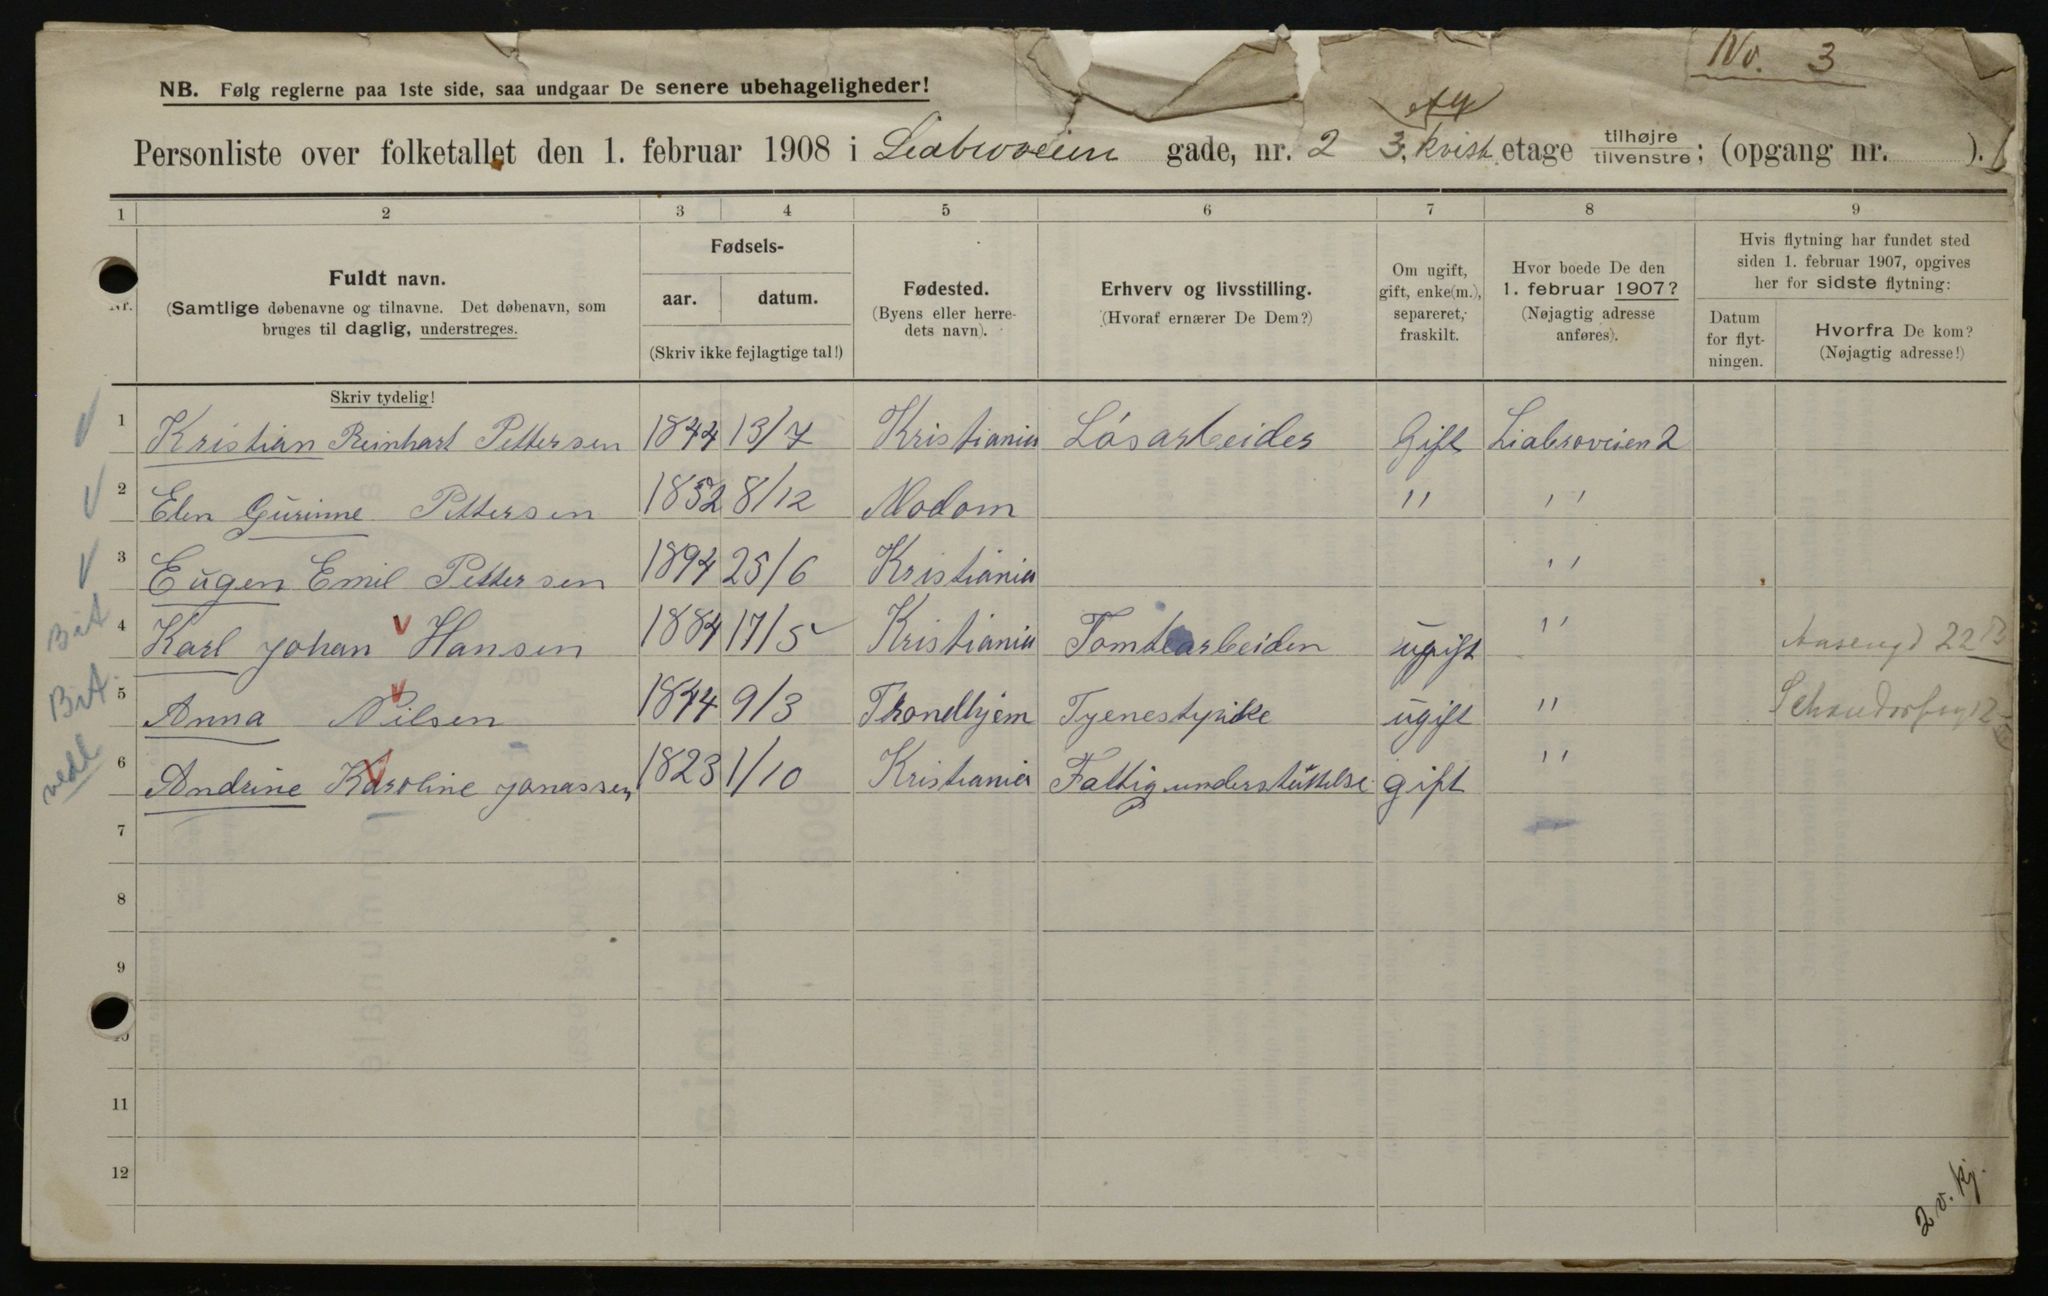 No. 3
NB. Følg reglerne paa 1ste side, saa undgaar De senere ubehageligheder!
Personliste over folketallet den 1. februar 1908 i Liabroveien gade, nr. 2 3. kvist etage tilhøjre tilvenstre; (opgang nr. ).
1 2 3 4 5 6 7 8 9
Nr.
Fuldt navn.
(Samtlige døbenavne og tilnavne. Det døbenavn, som
bruges til daglig, understreges.
Skriv tydelig!
Fødsels-
aar. datum.
(Skriv ikke fejlagtige tal!)
Fødested.
(Byens eller herre-
dets navn).
Erhverv og livsstilling.
(Hvoraf ernærer De Dem?)
Om ugift,
gift, enke(m.),
separeret,
fraskilt.
Hvor boede De den
1. februar 1907?
(Nøjagtig adresse
anføres).
Hvis flytning har fundet sted
siden 1. februar 1907, opgives
her for sidste flytning:
Datum
for flyt-
ningen.
Hvorfra De kom?
(Nøjagtig adresse!)
1 Kristian Reinhart Pettersen 1844 13/7 Kristiania Løsarbeider Gift Liabroveien 2
2 Elen Gurinne Pettersen 1852 8/12 Modom " "
3 Eugen Emil Pettersen 1894 25/6 Kristiania "
4 Karl Johan Hansen 1884 17/5 Kristiania Tomtearbeiden ugift " 22
5 Anna Nilsen 1844 9/3 Trondhjem Tjenestpike ugift "
6 Andrine Karoline Jonassen 1823 1/10 Kristiania Fattigunderstüttelse gift "
7
8
9
10
11
12
2 v. kj.